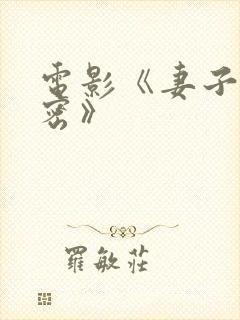 電影《妻子
密》
羅敏莊